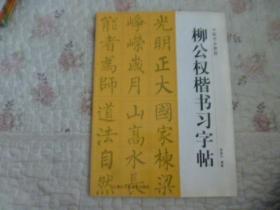 柳公权楷书习字帖
光明正大國家棟梁
崢嶸歲月山高水長
能者為師道法自然